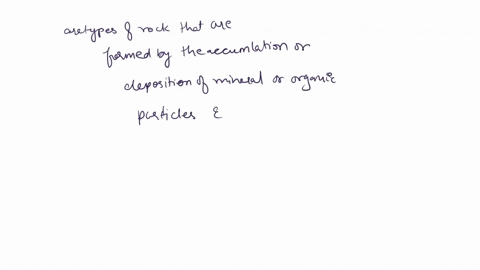 aretypes of rock that are
formed by the accumlation or
deposition of mineral or organic
particles &